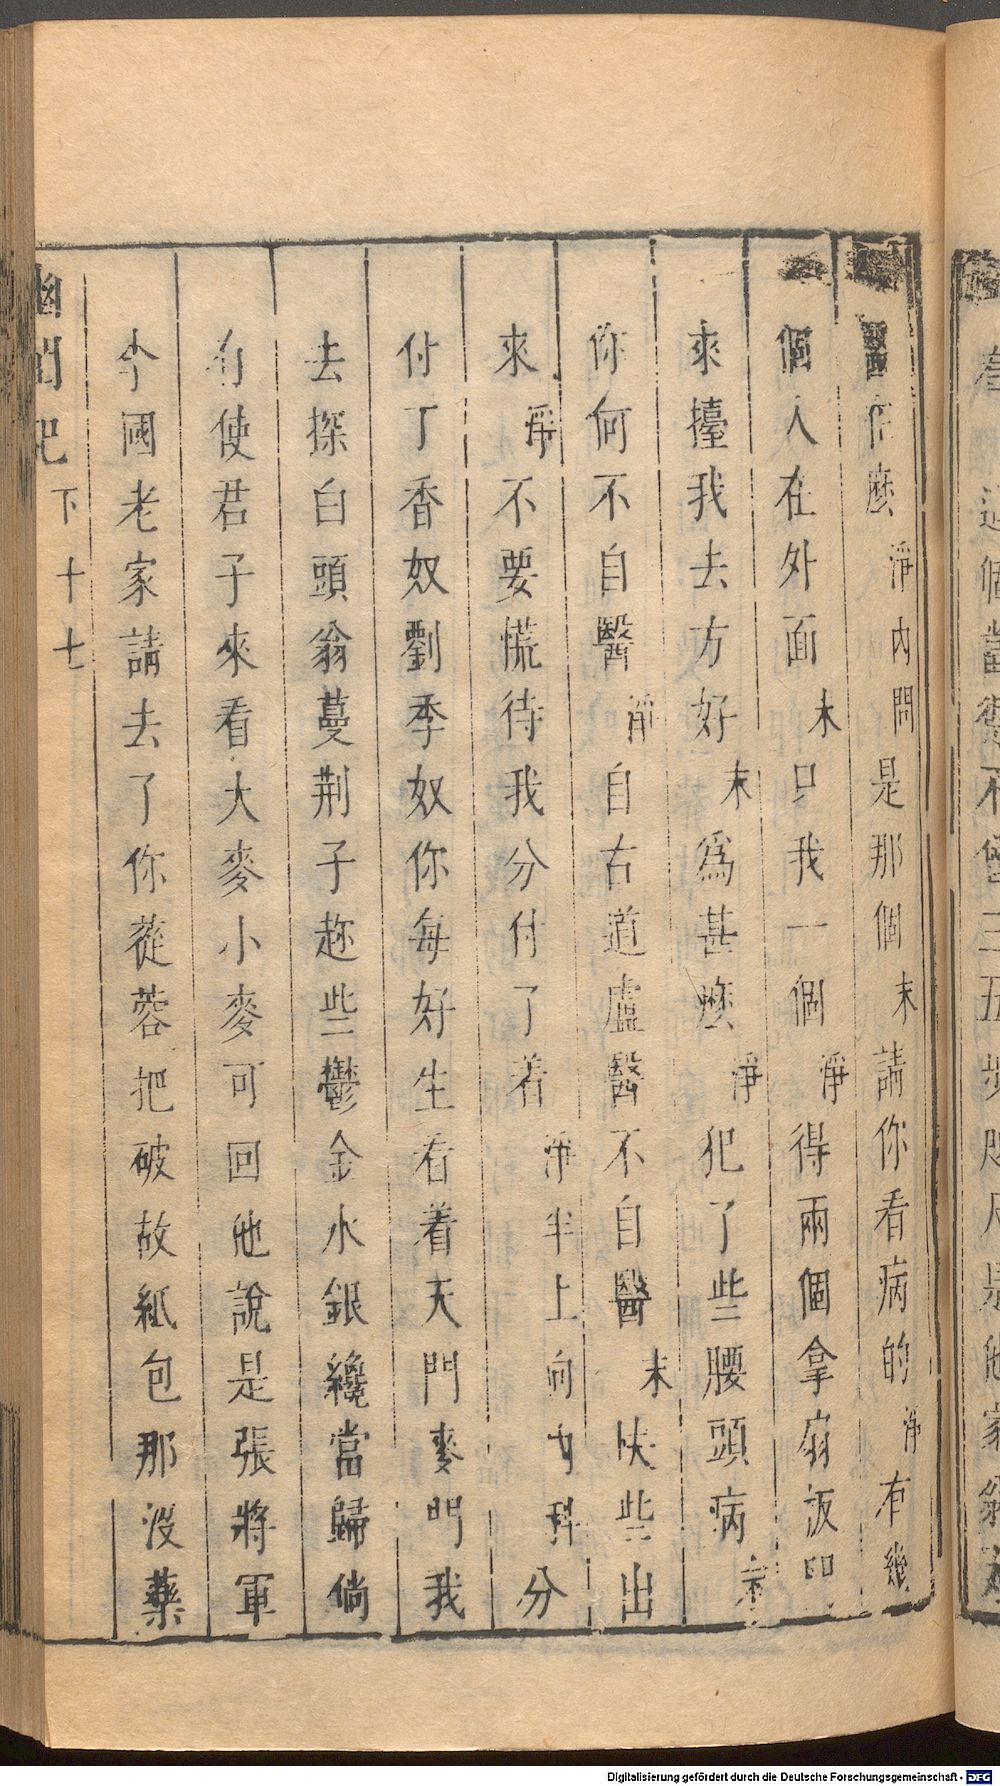 醫作麽淨內問是那個末請你看病的淨有幾
個人在外面末只我一個淨得兩個拿扇扳門
來擡我去方好末爲甚麽淨犯了些腰頭病末
你何不自醫淨自古道盧醫不自醫末快些出
來淨不要慌待我分付了着淨半上向內科分
付了香奴劉季奴你每好生看着天門麥門我
去探白頭翁蔓荆子趂些鬱金水銀纔當歸倘
有使君子來看大麥小麥可回他說是張將軍
李國老家請去了你蓯蓉把破故紙包那没藥
幽閨記 下 十七
Digitalisierung gefördert durch die Deutsche Forschungsgemeinschaft - DFG